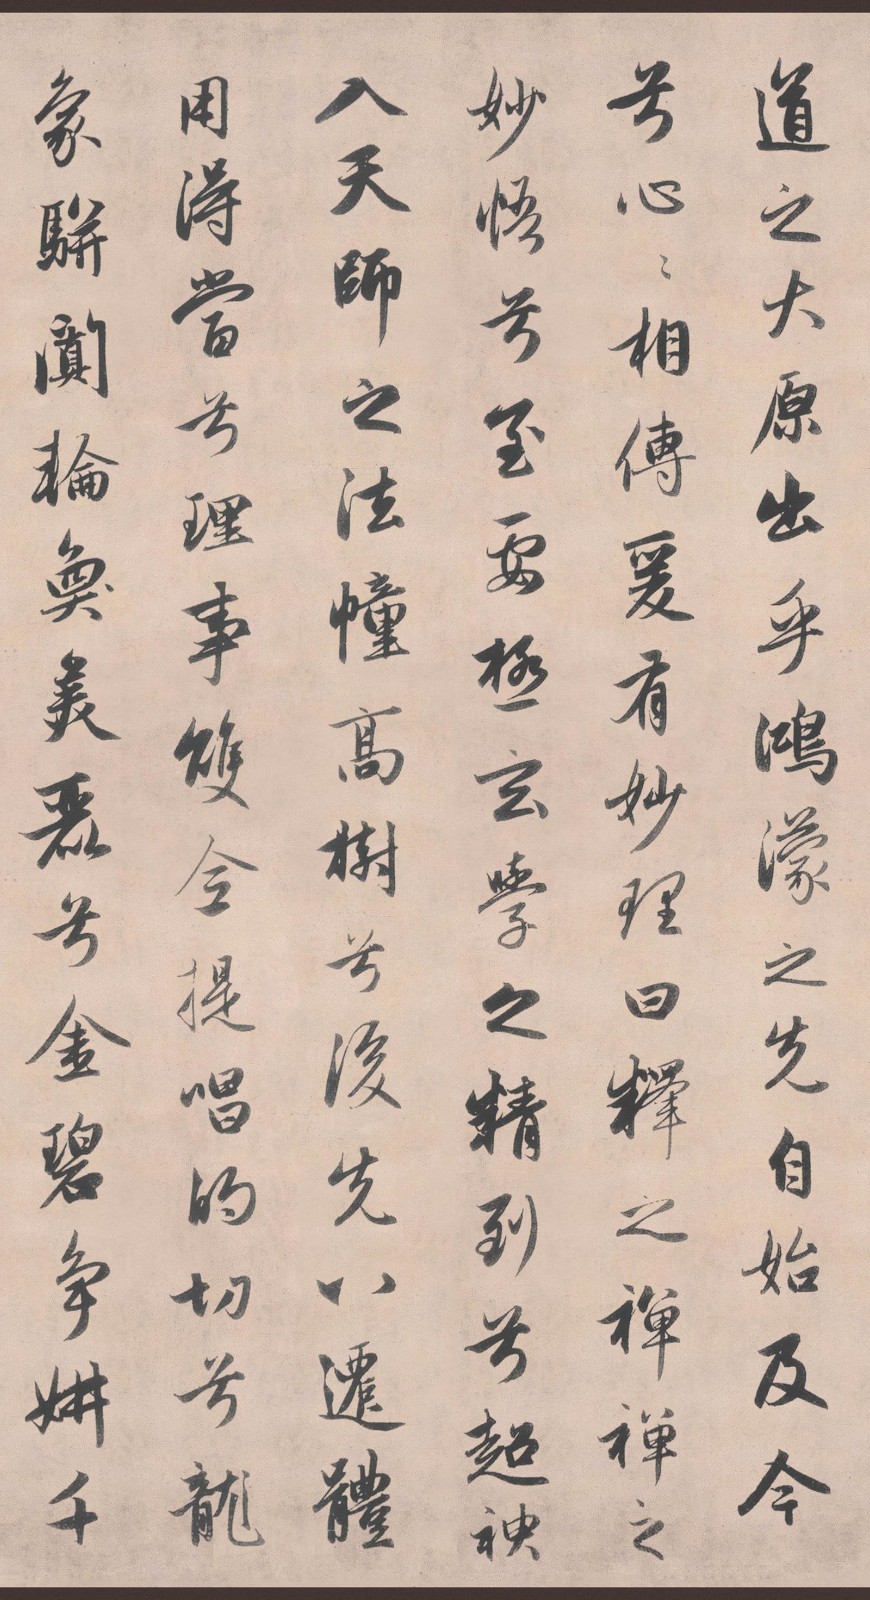 道之大原出乎鴻濛之先自始及今
兮心〻相傳爰有妙理曰釋之禪禪之
妙悟兮至要極玄學之精到兮超
入天師之法幢高樹兮後先以還體
用得當兮理事雙全提唱的切兮龍
象駢闐輪奐美麗兮金碧爭妍千